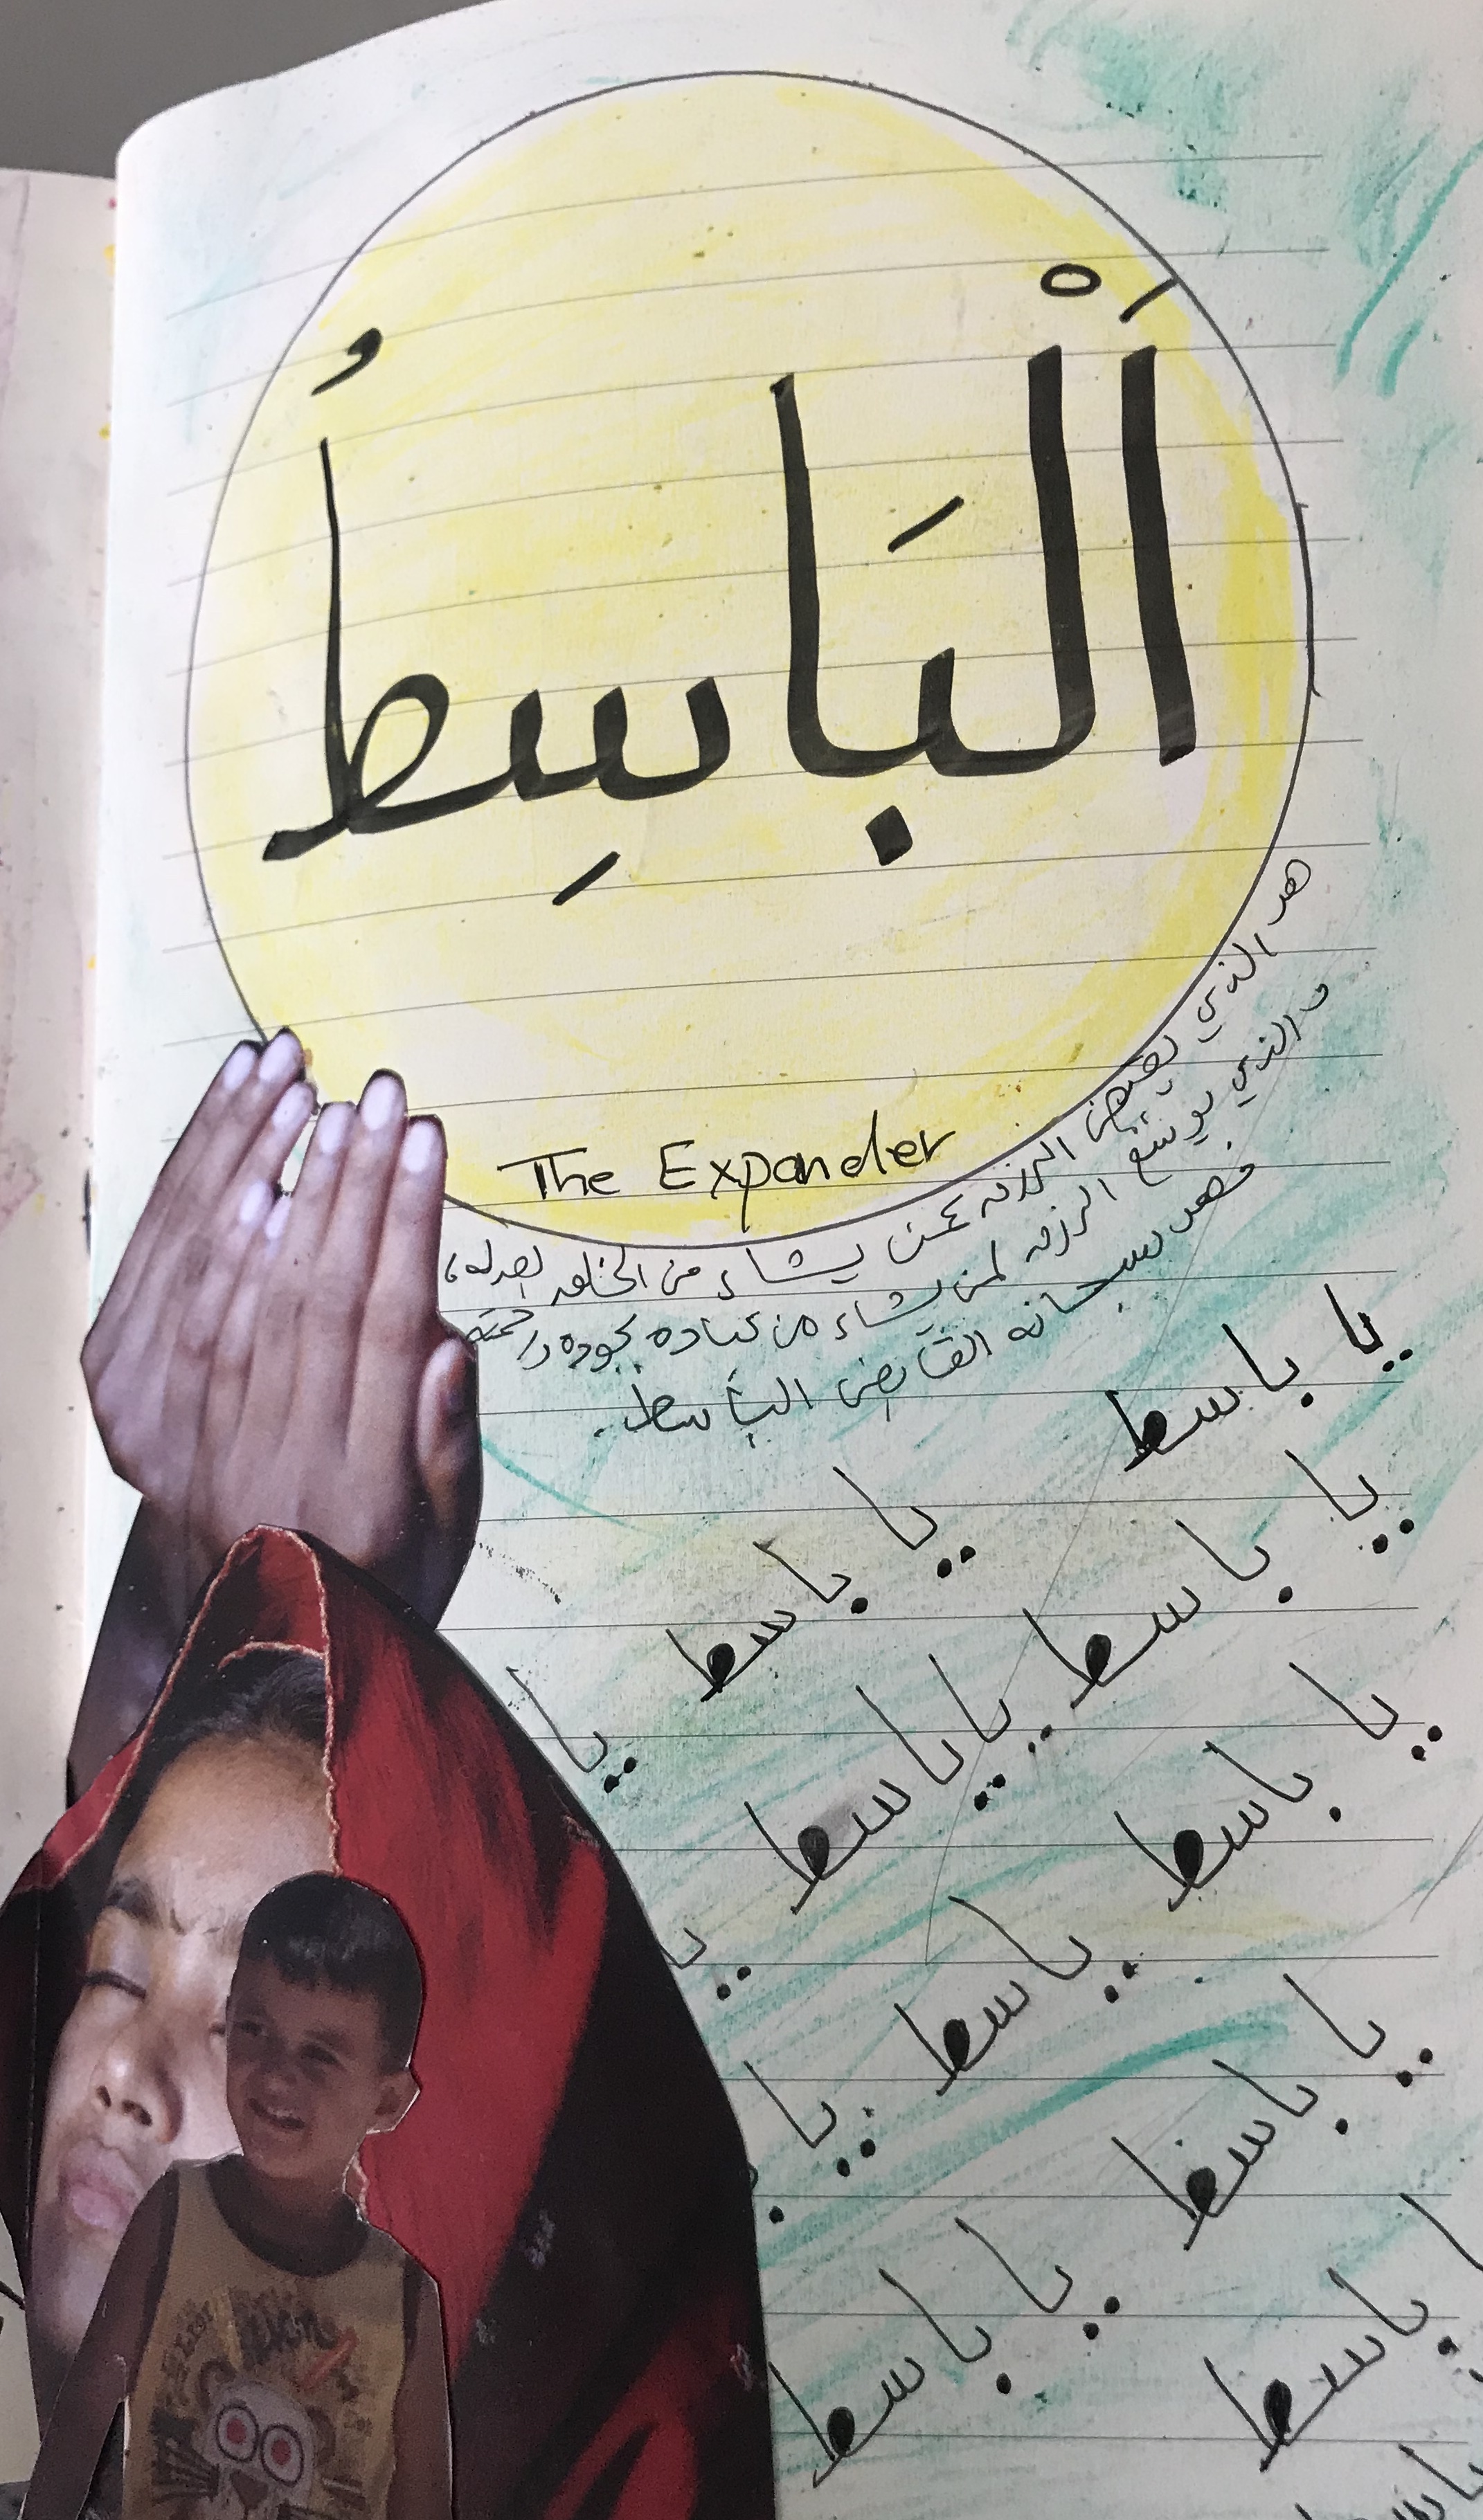 اَلْبَاسِطُ
The Expander
هو الذي يقبض الرزق عمن يشاء من الخلق بعدله،
و الذي يوسع الرزق لمن يشاء من عباده بجوده ورحمته
فهو سبحانه القابض الباسط.
يا باسط
يا باسط
يا باسط يا باسط
يا
يا باسط يا باسط
يا باسط
يا
يا باسط
يا باسط
باسط